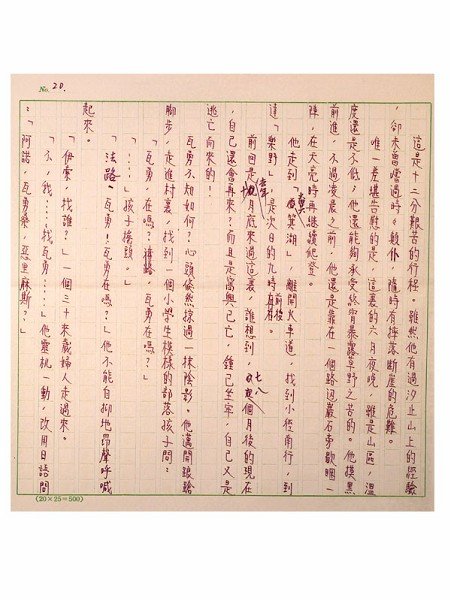 No. 20.
這是十二分艱苦的行程。雖然他有過汐止山上的經驗
，卻未曾嚐過時時顛仆，隨時有摔落斷崖的危難。
唯一差堪告慰的是，這裏的六月夜晚，雖是山區，溫
度還是不低；他還能夠承受終宵暴露草野之苦的。他摸黑
前進，不過凌晨之前，他還是靠在一個路边巖石旁歇睏一
陣，在天亮時再繼續起登。
他走到「奮箕湖」，離開火車道，找到小徑南行，到
達「樂野」是次日的九時前後。
前回是晚冬一月底來過這裏，誰想到，七八個月後的現在
，自己還會再來？而且是高興已亡，鍾已坐牢，自己又是
逃亡而來的！
瓦勇不知如何？心頭倏然掠過一抹陰影。他邁開踉蹌
腳步，走進村裏，找到一個小學生模樣的部落孩子問：
「瓦勇，在嗎？瓦勇在嗎？」
「……」孩子搖頭。
「法路！瓦勇！瓦勇在嗎？」他不能自抑地昂聲呼喊
起來。
「伊索，找誰？」一個三十來歲婦人走過來。
「不，我……找瓦勇……」他靈機一動，改用日語問
：「阿諾，瓦勇桑，惡里麻斯？」
(20×25=500)